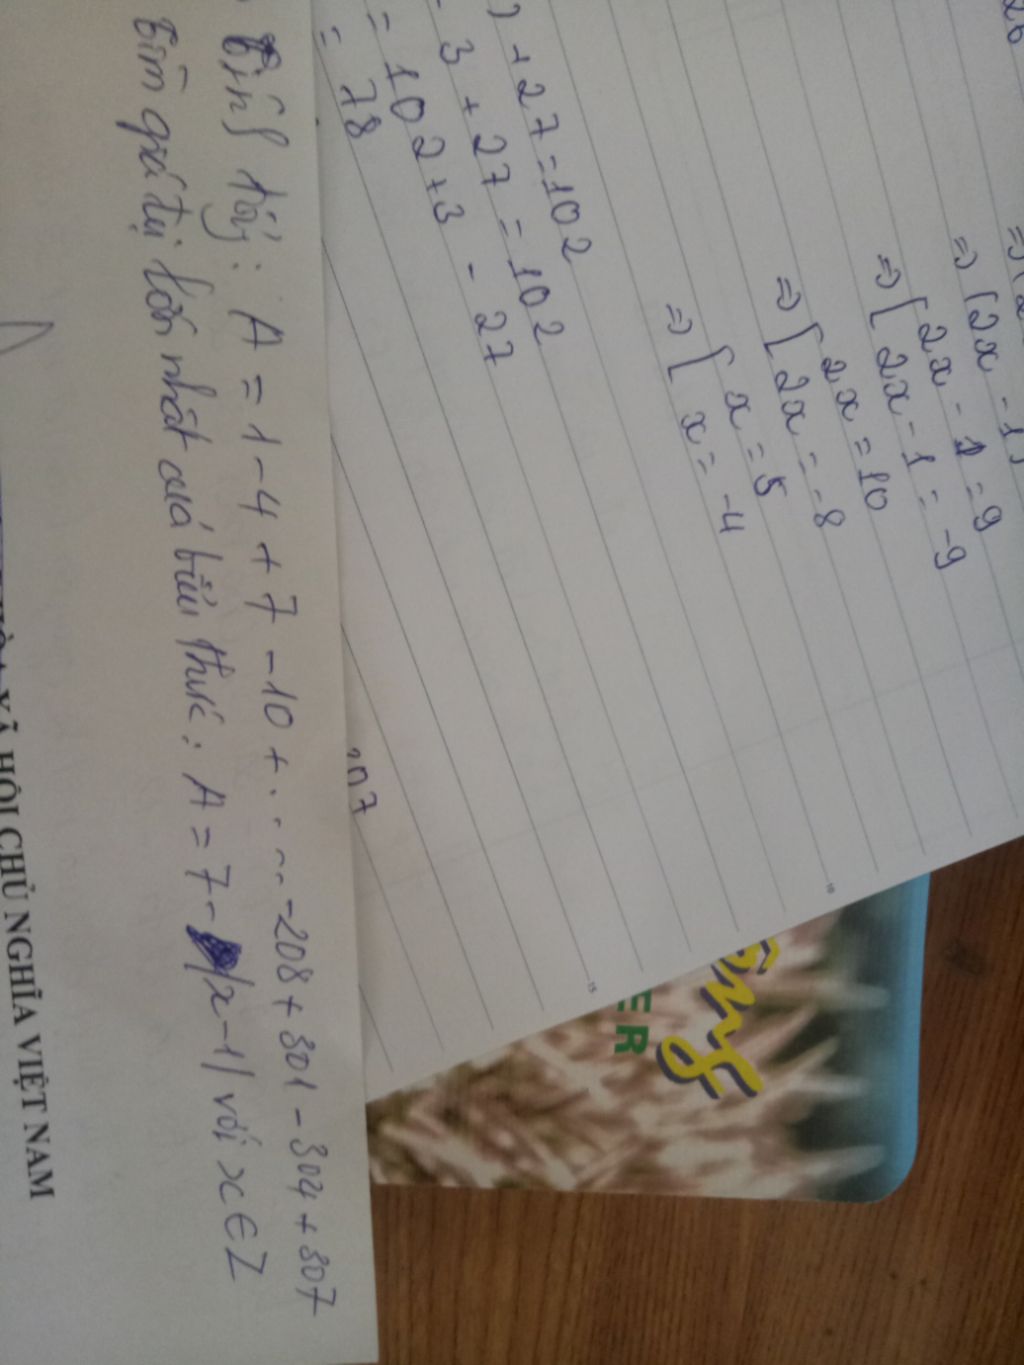 26
=> (2x - 1)
=> [ 2x - 1 = 9
2x - 1 = -9
=> [ 2x = 10
2x = -8
=> [ x = 5
x = -4
) + 27 = 102
- 3 + 27 = 102
= 102 + 3 - 27
= 78
307
Tính tổng: A = 1 - 4 + 7 - 10 + ..... - 208 + 301 - 304 + 307
Tìm giá trị lớn nhất của biểu thức: A = 7 - |x - 1| với x ∈ Z
XÃ HỘI CHỦ NGHĨA VIỆT NAM
10
15
ER